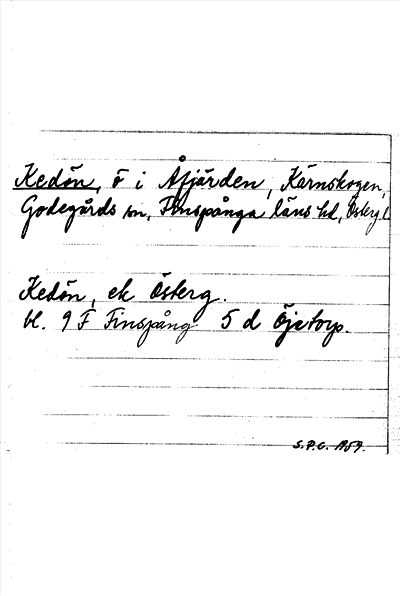 Kedön, ö i Åfjärden, Kärnskogen,
Godegårds sn, Finspånga läns hd, Österg l
Kedön, ek Österg.
bl. 9 F Finspång 5 d Öjetorp.
S.P.C. 1959.